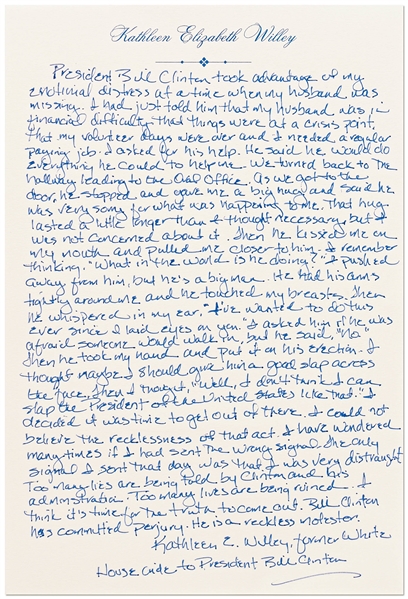 Kathleen Elizabeth Willey
President Bill Clinton took advantage of my
emotional distress at a time when my husband was
missing. I had just told him that my husband was in
financial difficulty, that things were at a crisis point,
that my volunteer days were over and I needed a regular
paying job. I asked for his help. He said he would do
everything he could to help me. We turned back to the
hallway leading to the Oval Office. As we got to the
door, he stopped and gave me a big hug and said he
was very sorry for what was happening to me. That hug
lasted a little longer than I thought necessary, but I
was not concerned about it. Then he kissed me on
my mouth and pulled me closer to him. I remember
thinking, "What in the world is he doing?" I pushed
away from him, but he's a big man. He had his arms
tightly around me and he touched my breasts. Then
he whispered in my ear, "I've wanted to do this
ever since I laid eyes on you." I asked him if he was
afraid someone would walk in, but he said, "No."
Then he took my hand and put it on his erection. I
thought maybe I should give him a good slap across
the face. Then I thought, "Well, I don't think I can
slap the President of the United States like that." I
decided it was time to get out of there. I could not
believe the recklessness of that act. I have wondered
many times if I had sent the wrong signal. The only
signal I sent that day was that I was very distraught.
Too many lies are being told by Clinton and his
administration. Too many lives are being ruined. I
think it's time for the truth to come out. Bill Clinton
has committed perjury. He is a reckless molester.
Kathleen E. Willey, former White
House aide to President Bill Clinton